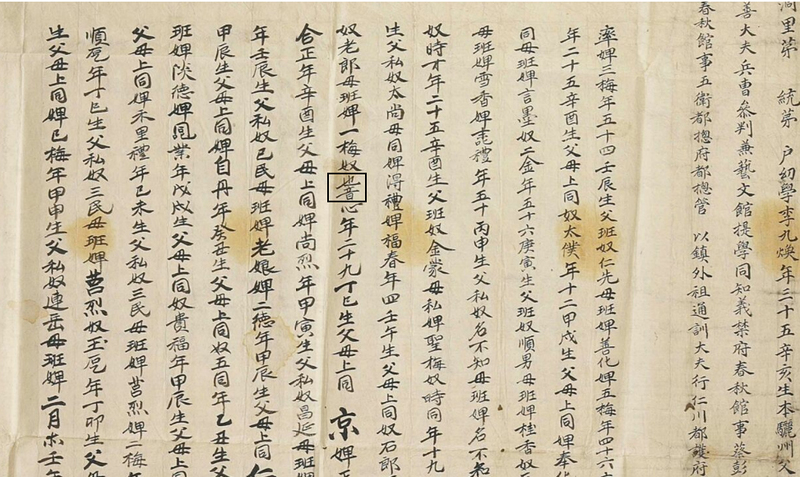 洞里第 統第 戶幼學李九煥年三十五辛亥生本驪州父
善大夫兵曹叅判兼藝文館提學同知義禁府春秋館事葬彭
春秋館事五衛都摠府都摠管 以鎮外祖通訓大夫行仁川都護府
率婢三梅年五十四壬辰生父班奴仁先母班婢善化婢五梅年四十六
年二十五辛酉生父母上同奴太僕年十二甲戌生父母上同婢奉
同母班婢言墨奴二金年五十六庚寅生父班奴順男母班婢桂香奴
母班婢雪香婢禮年五十丙申生父私奴名不知母班婢名不
奴時才年二十五辛酉生父班奴金母私婢聖梅奴時同年十九
生父私奴太尚母同婢得禮婢福春年四壬午生父母上同奴石郎
奴老郎母班婢一梅奴心年二十九丁巳生父母上同 京婢
合正年辛酉生父母上同婢尚烈年甲寅生父私奴昌延母班婢
年壬辰生父私奴已民母班婢老娘婢二德年甲辰生父母上同
甲辰生父母上同婢自丹年癸丑生父母上同奴五同年乙丑生父
班婢淡德婢同業年戊戌生父母上同奴貴福年甲辰生父母上同
父母上同婢禾里禮年己未生父私奴三民母班婢莒烈婢二梅年
順年丁巳生父私奴三民母班婢莒烈奴玉年丁卯生父
生父母上同婢已梅年甲申生父私奴連岳母班婢二月壬